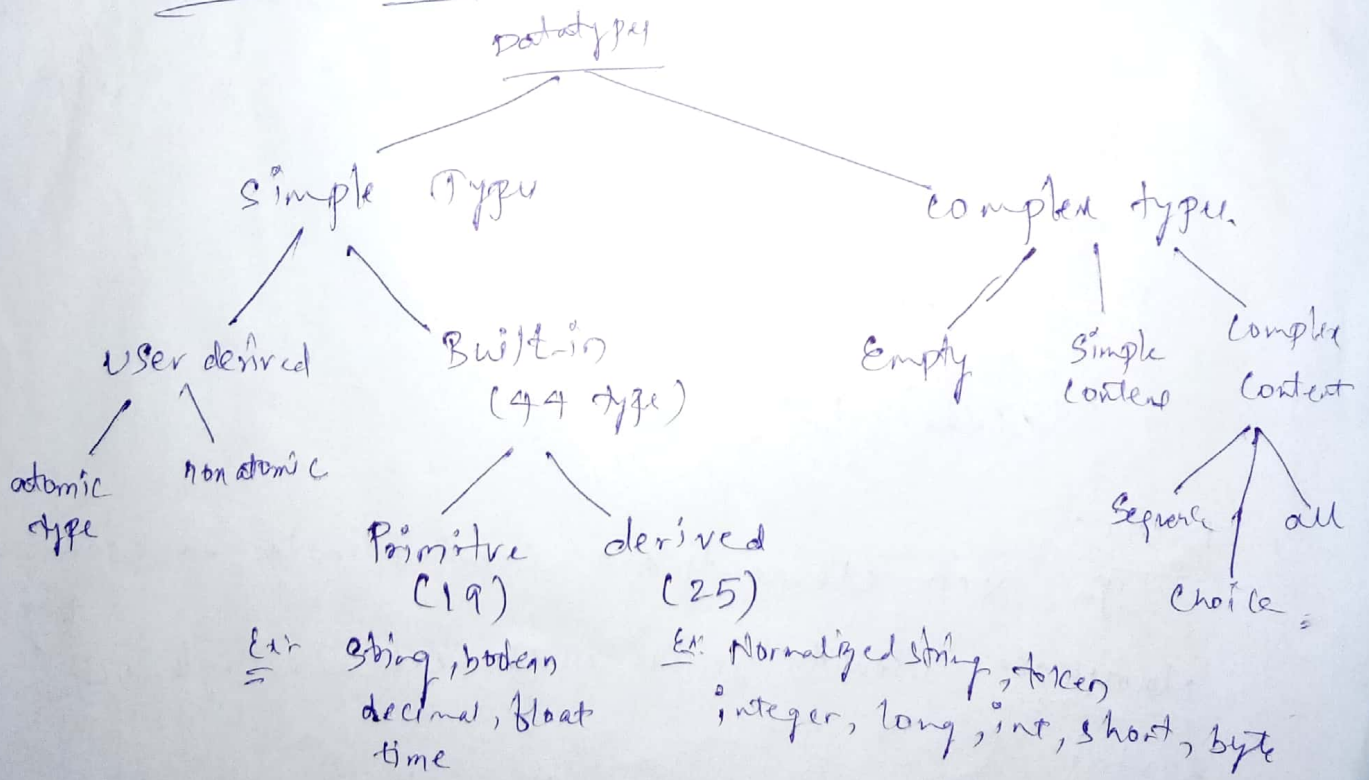 Datatypes
Simple Types
complex types.
User derived
Built-in
(44 type)
Empty
Simple
Content
Complex
Content
atomic
type
non atomic
Primitive
(19)
derived
(25)
Sequence
all
Choice
Ex:- string, boolean
decimal, float
time
Ex: Normalized string, token
integer, long, int, short, byte